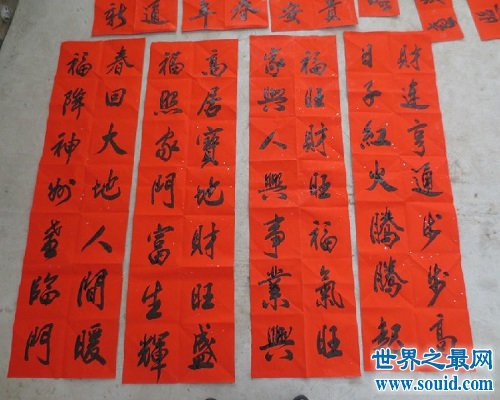 財運亨通步步高
日子紅火騰騰起
福旺財旺福氣旺
家興人興事業興
高居寶地財旺盛
福照家門富生輝
春回大地人間暖
福降神州喜臨門
世界之最网
www.souid.com